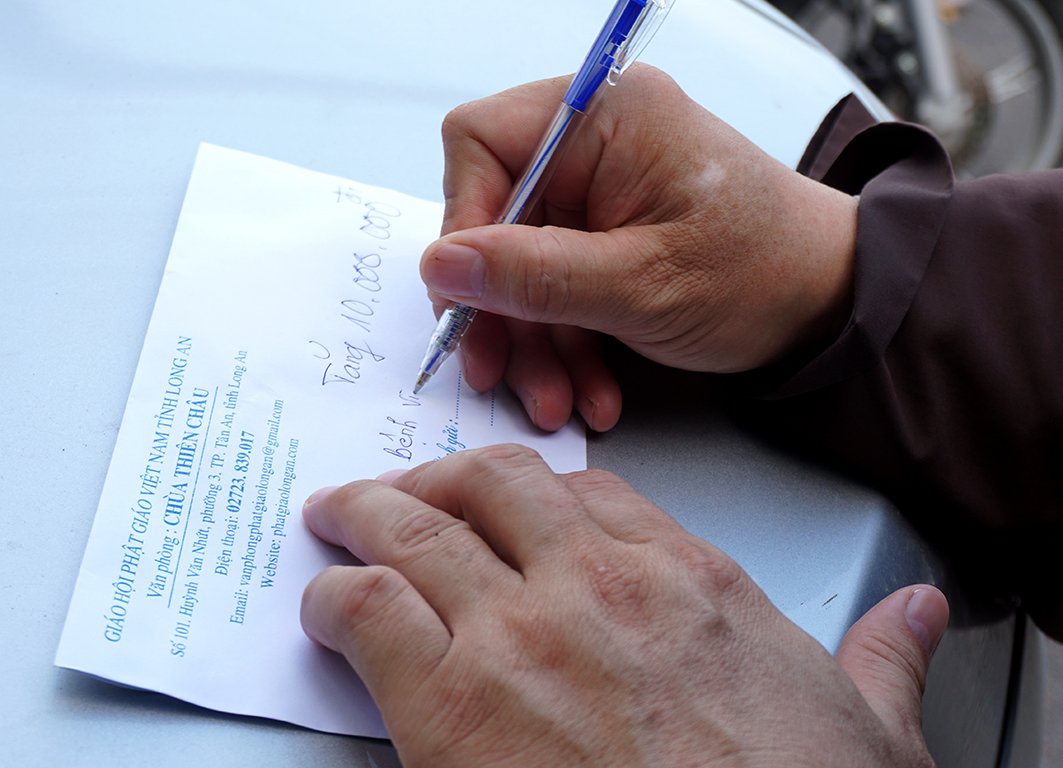 GIÁO HỘI PHẬT GIÁO VIỆT NAM TỈNH LONG AN
Văn phòng : CHÙA THIÊN CHÂU
Số 101. Huỳnh Văn Nhứt, phường 3, TP. Tân An, tỉnh Long An
Điện thoại: 02723. 839.017
Email: vanphongphatgiaolongan@gmail.com
Website: phatgiaolongan.com
Tặng 10.000.000 đ
Bệnh Vi
gửi :